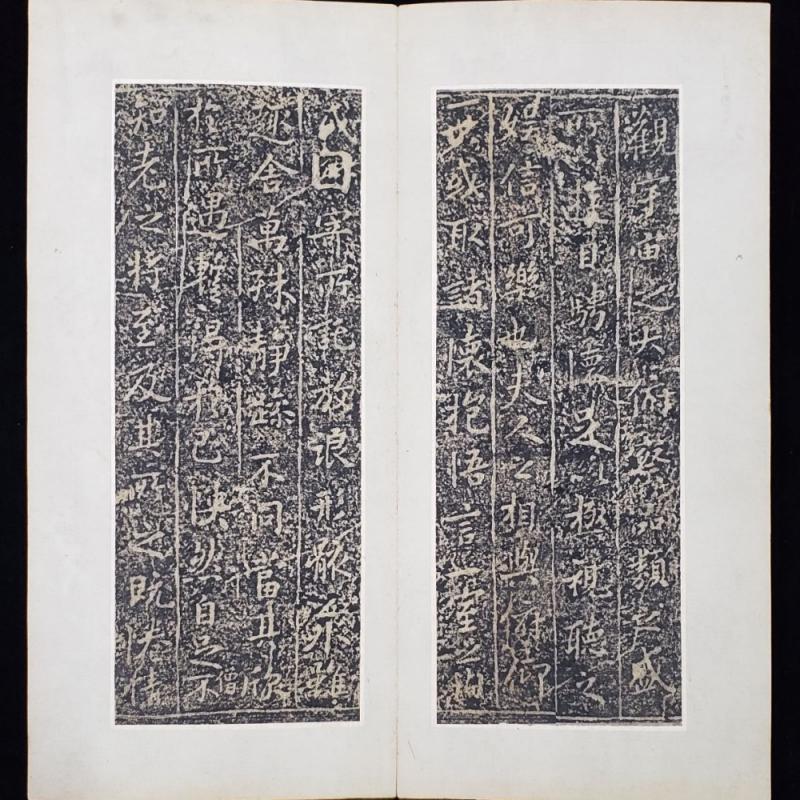 觀宇宙之大俯察品類之盛
所以遊目騁懷足以極視聽之
娛信可樂也夫人之相與俯仰
一世或取諸懷抱悟言一室之內
或因寄所託放浪形骸之外雖
趣舍萬殊靜躁不同當其欣
僧
於所遇暫得於己快然自足不
知老之將至及其所之既惓情